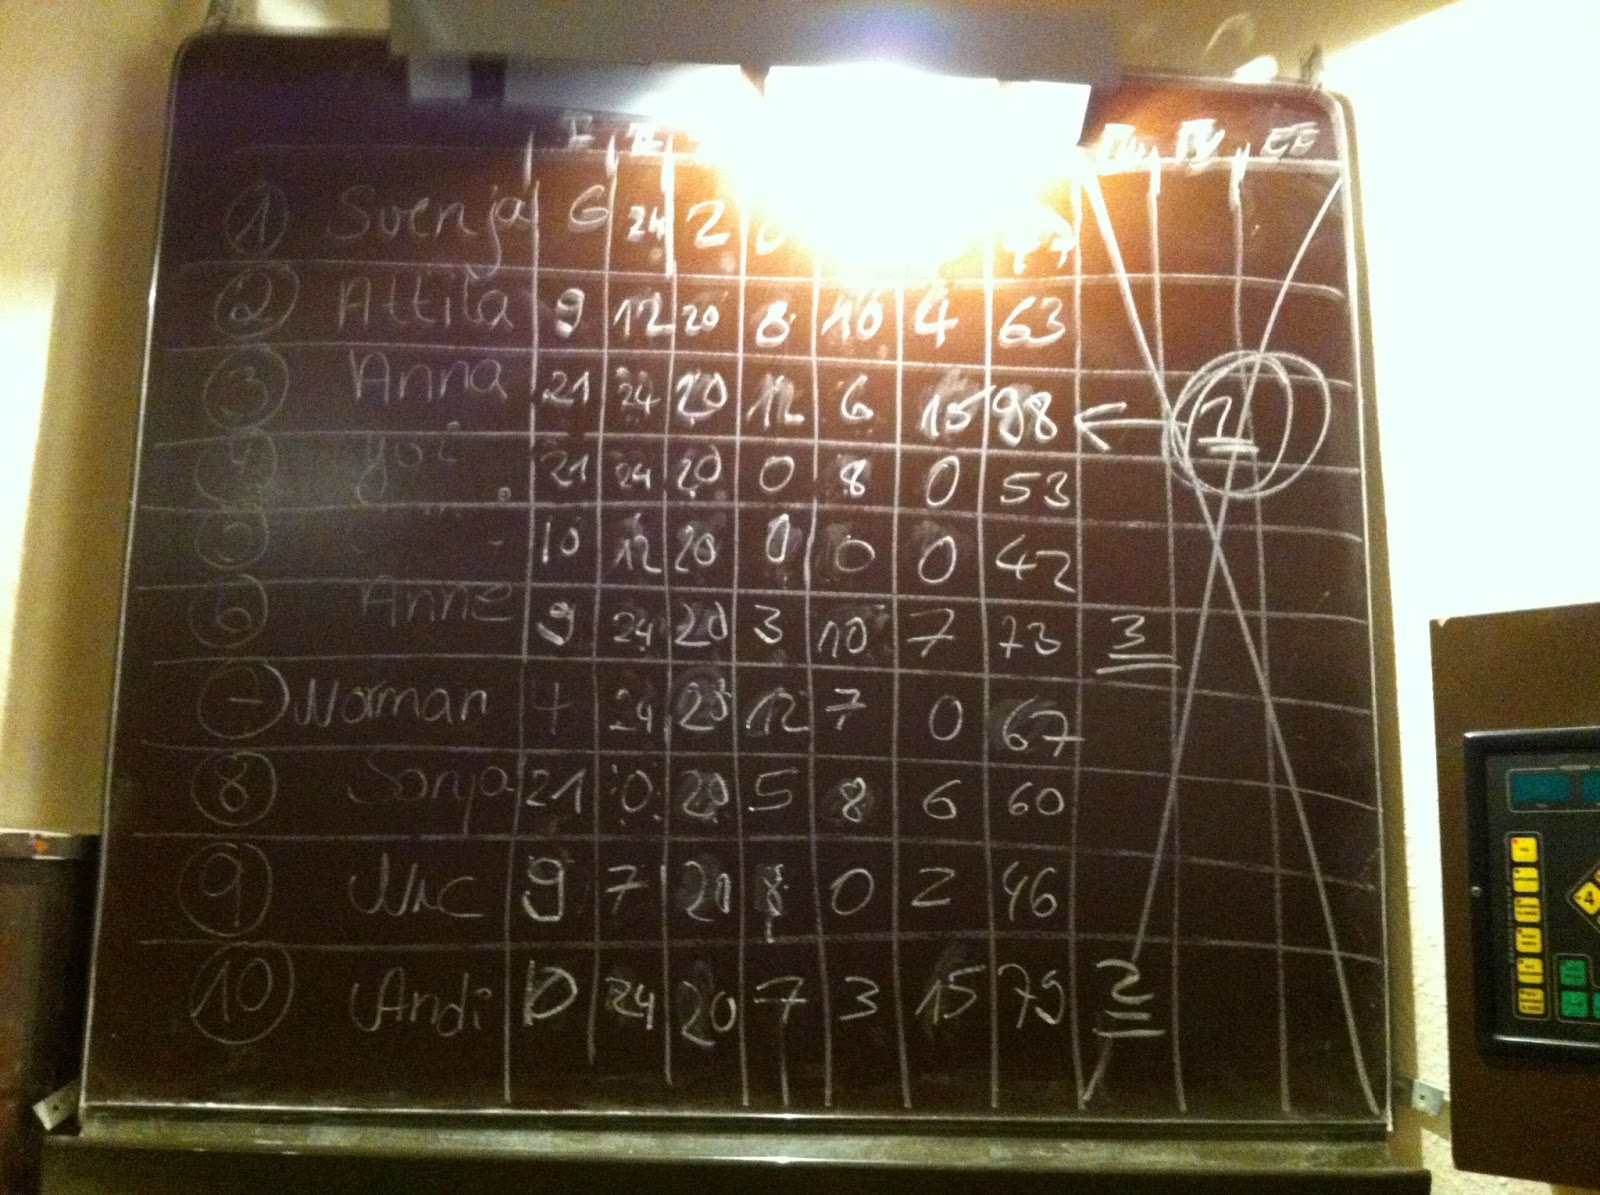 I II IV EE
1 Svenja 6 24 2 0
2 Attila 9 12 20 8 10 4 63
3 Anna 21 24 20 12 6 15 98 ← 1
4 21 24 20 0 8 0 53
10 12 20 0 0 0 42
6 Anne 9 24 20 3 10 7 73 3
7 Norman 4 24 20 12 7 0 67
8 Sonja 21 0 20 5 8 6 60
9 9 7 20 8 0 2 46
10 Andi 0 24 20 7 3 15 79 2
4